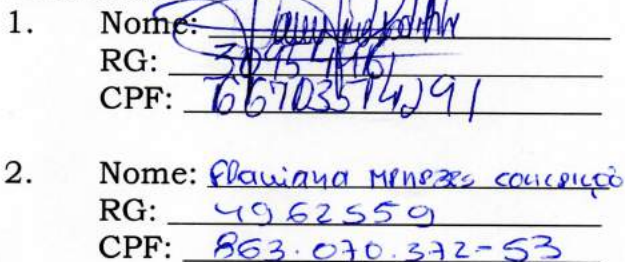 1. Nome:
RG:
CPF: 66703574291
2. Nome: Flaviana Menezes Conceição
RG: 4962559
CPF: 863.070.372-53